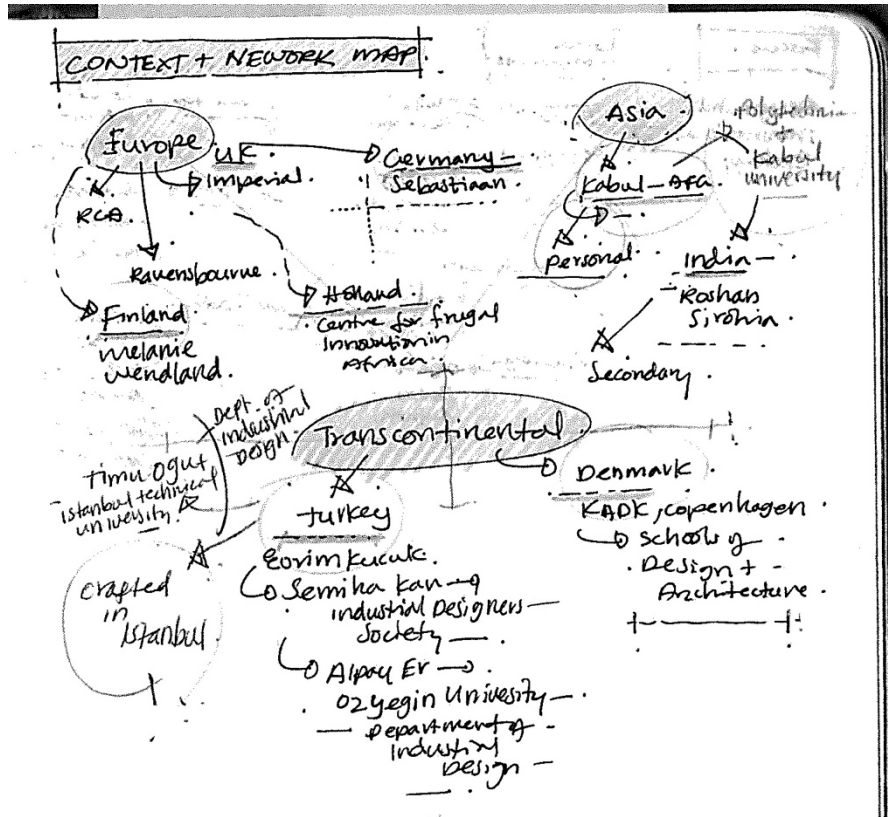 CONTEXT + NEWORK MAP
Europe
UK
Imperial.
RCA.
Ravensbourne.
Germany -
Sebastiaan.
Finland
Melanie
Wendland.
Holland.
Centre for frugal
Innovation in
Africa.
Asia
Kabul - AFG.
Polytechnic
+
Kabul
University
Personal.
India -
Roshan
Sirohia.
Secondary.
Transcontinental.
Turkey
Dept. of
industrial
Design.
Timu ogut
istanbul technical
university.
Crafted
in
Istanbul.
Evrim kucuk.
Semiha Kan
Industrial Designers
Society
Alpay Er
Ozyegin Univesity
Department of
Industrial
Design
Denmark.
KADK, copenhagen
Schools of
Design +
Architecture.